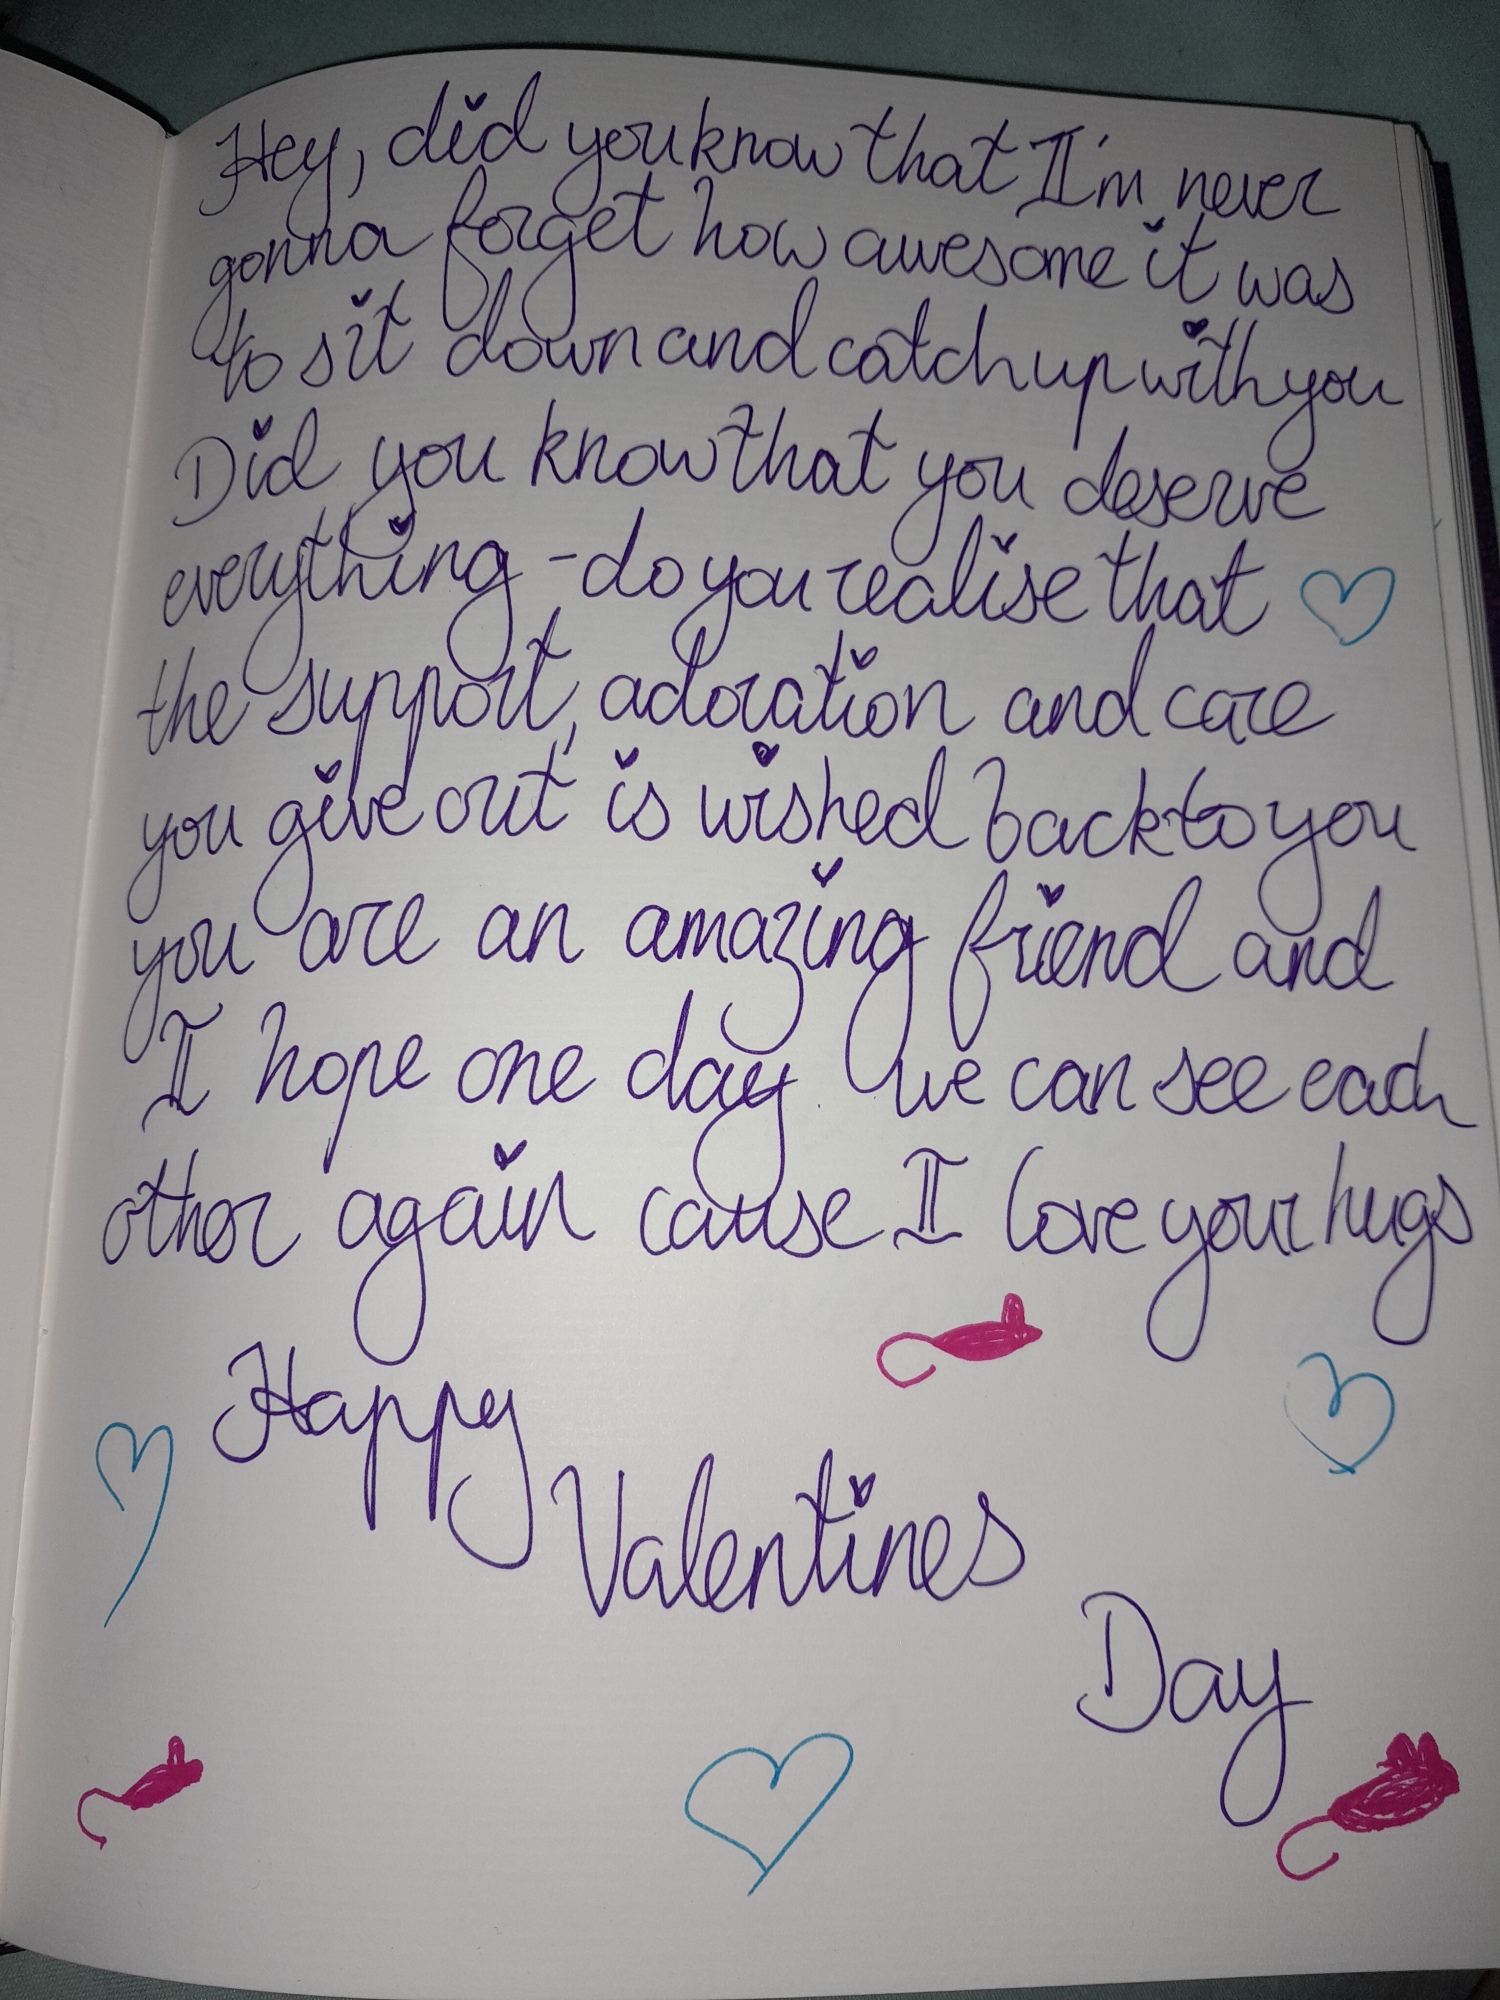 Hey, did you know that I'm never
gonna forget how awesome it was
to sit down and catch up with you
Did you know that you deserve
everything - do you realise that
the support, adoration and care
you give out is wished back to you
you are an amazing friend and
I hope one day we can see each
other again cause I love your hugs
Happy
Valentines
Day